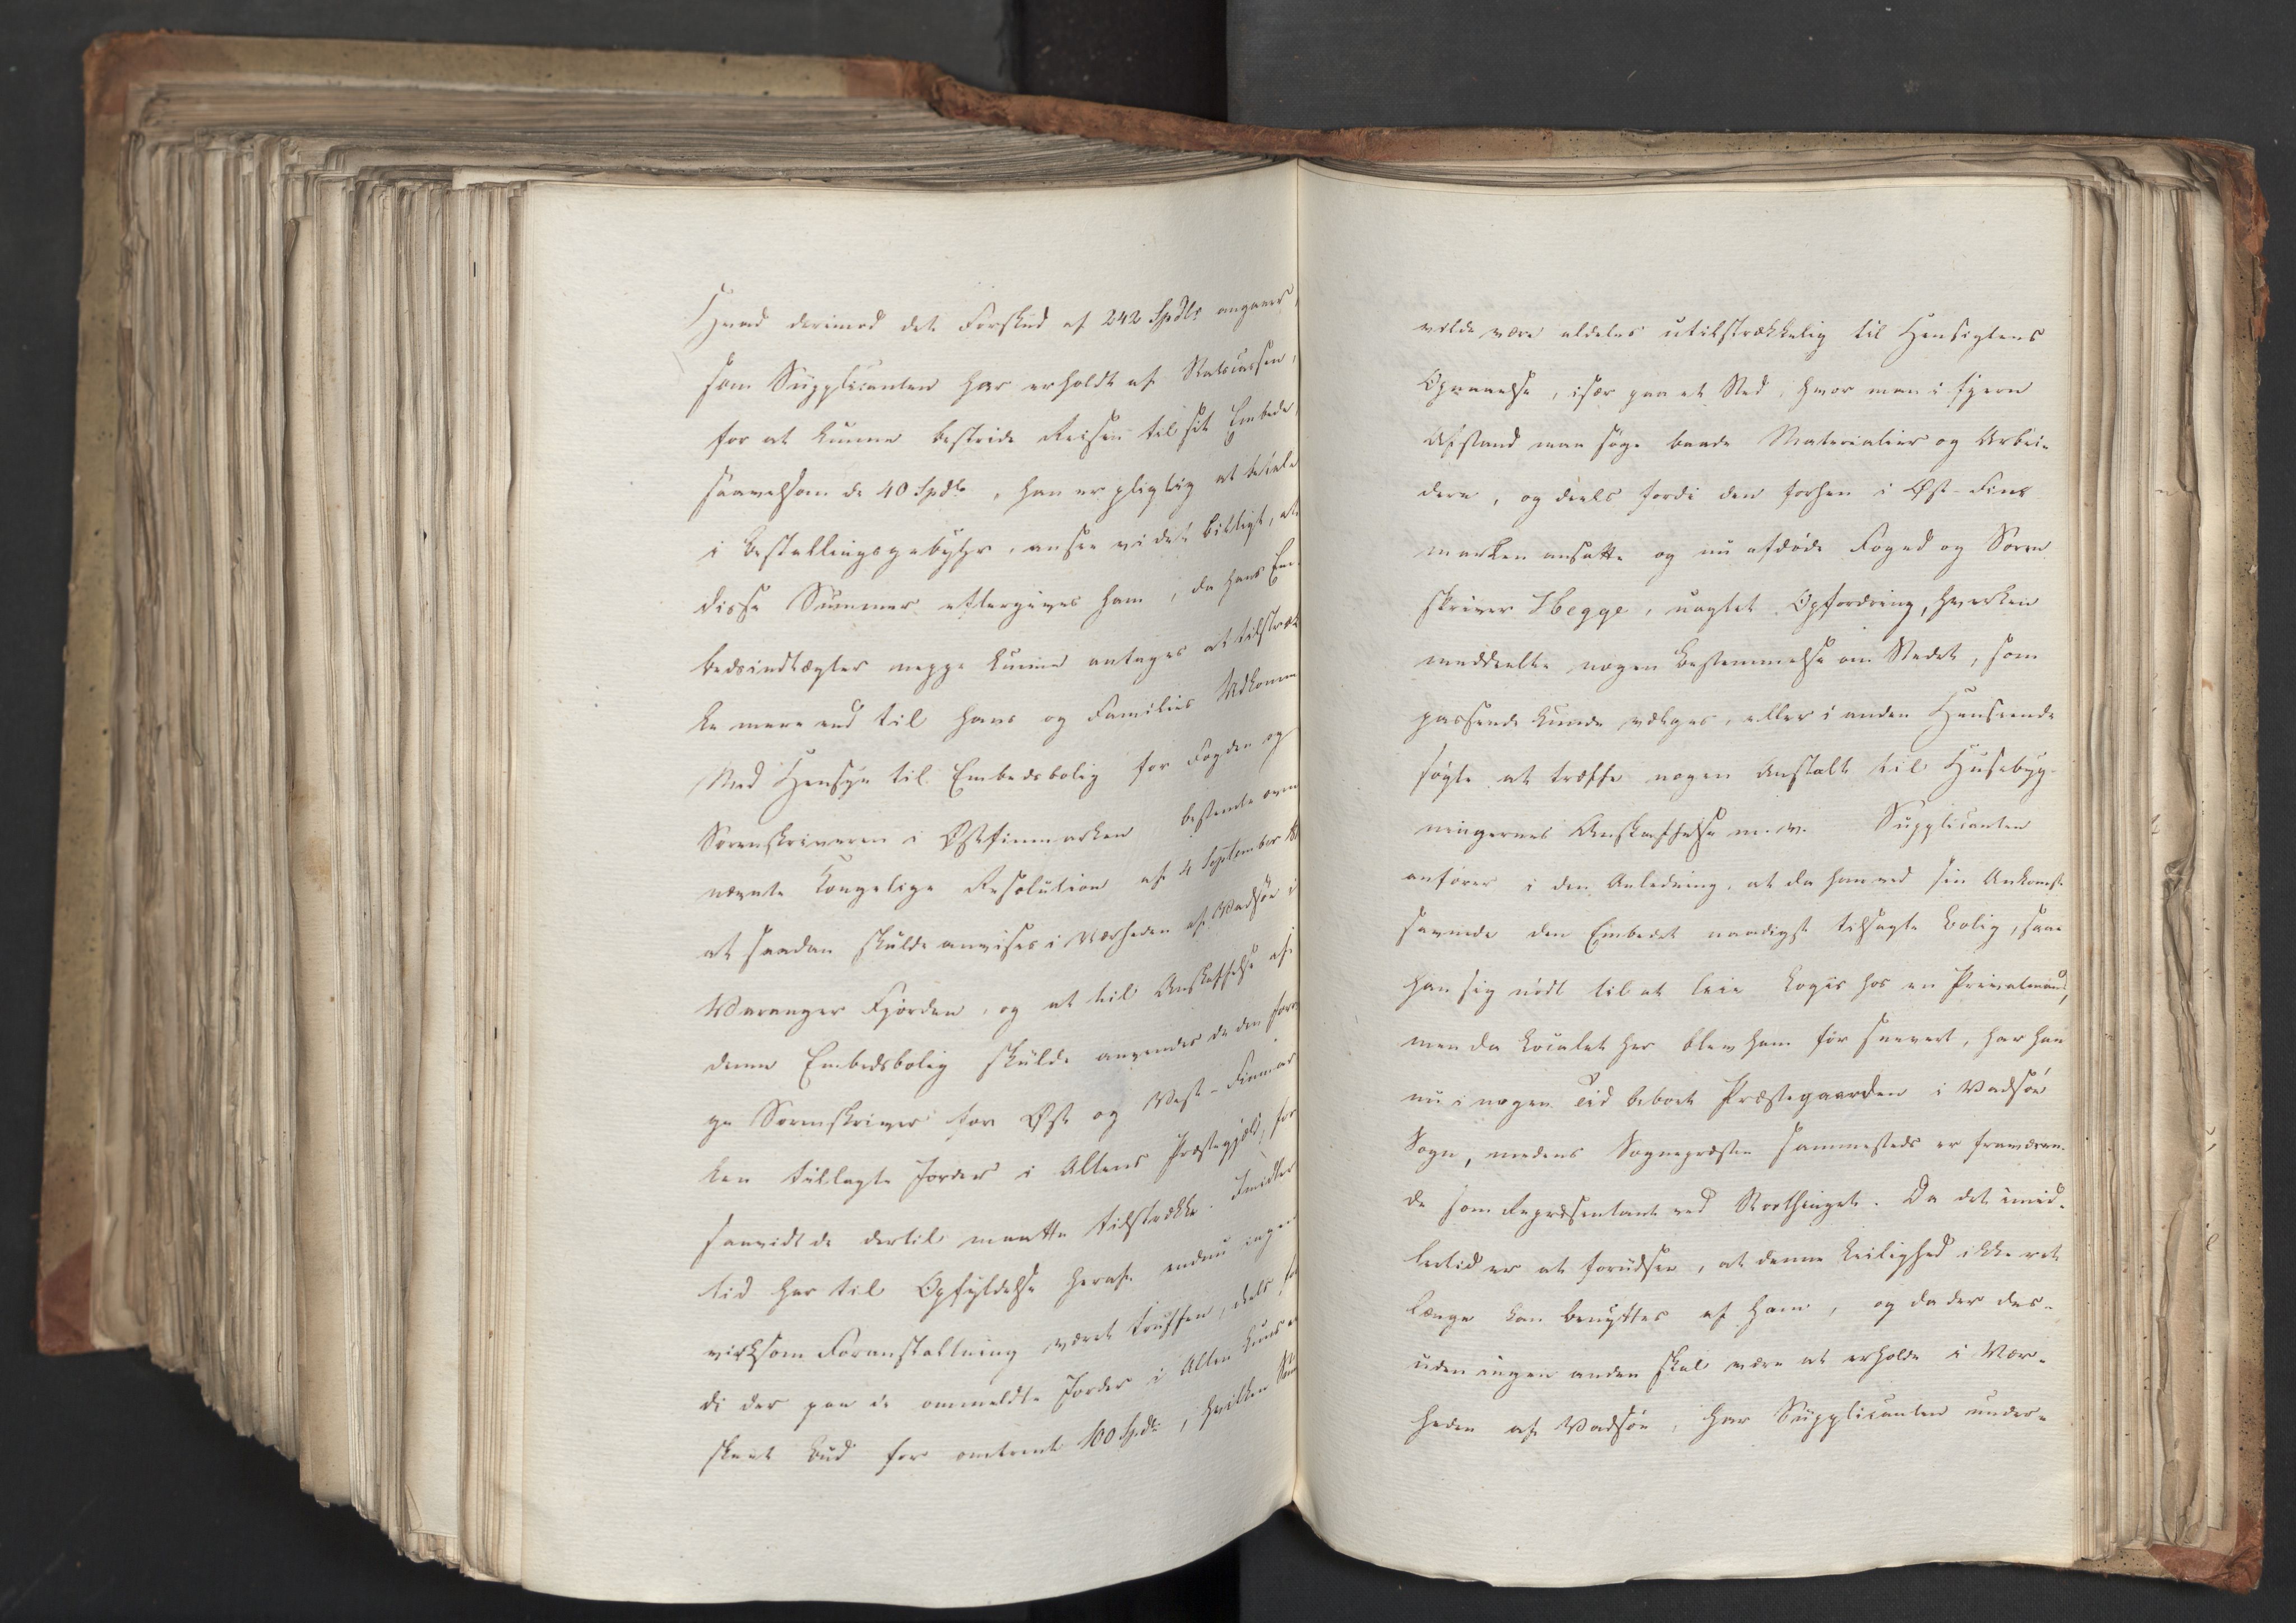 Hvad derimod det Forskud af 242 Spdlr angaaer,
som Supplicanten har erholdt af Statscassen,
for at kunne bestride Reisen til sit Embede,
saavelsom de 40 Spdlr, han er pligtig at betale
i Bestallingsgebyhr, ansee vi det billigt, at
disse Summer eftergives ham, da hans Em-
bedsindtægter neppe kunne antages at tilstræk
ke mere end til hans og Families Udkomm
Med Hensyn til Embedsbolig for Fogden og
Sorenskriveren i Østfinmarken bestemte oven
nævnte Kongelige Resolution af 4 September
at saadan skulde anvises i Nærheden af Vadsøe i
Waranger Fjorden, og at til Anskaffelse af
denne Embedsbolig skulde anvendes de den fore
ge Sorenskriver for Øst og Vest-Finmar
ken tillagte Jorder i Altens Præstegjæld, for
saavidt de dertil maatte tilstrække. Imidler
tid har til Opfyldelse heraf endnu ingen
virksom Foranstaltning været truffen, deels for
di der paa de ommeldte Jorder i Alten kuns er
skeet Bud for omtrent 100 Spdlr, hvilken
vilde være aldeles utilstrækkelig til Hensigtens
Opnaaelse, især paa et Sted, hvor man i fjern
Afstand maa søge baade Materialier og Arbei-
dere, og deels fordi den forhen i Øst-Fin
marken ansatte og nu afdøde Foged og Soren
skriver Ibegge, uagtet Opfordring, hverken
meddeelte nogen Bestemmelse om Stedet, som
passende kunde vælges, eller i anden Henseende
søgte at træffe nogen Anstalt til Husebyg-
ningernes Anskaffelse m. v. Supplicanten
anfører i den Anledning, at da han ved sin Ankomst
savnede den Embedet naadigst tilsagte Bolig, saae
han sig nødt til at leie Logis hos en Privatmand,
men da Localet her blev ham for snevert, har han
nu i nogen Tid beboet Præstegaarden i Vadsøe
Sogn, medens Sognepræsten sammesteds er fraværen-
de som Repræsentant ved Storthinget. Da det imid-
lertid er at forudsee, at denne Leilighed ikke ret
længe kan benyttes af ham, og da der des-
uden ingen anden skal være at erholde i Nær-
heden af Vadsøe, har Supplicanten under-